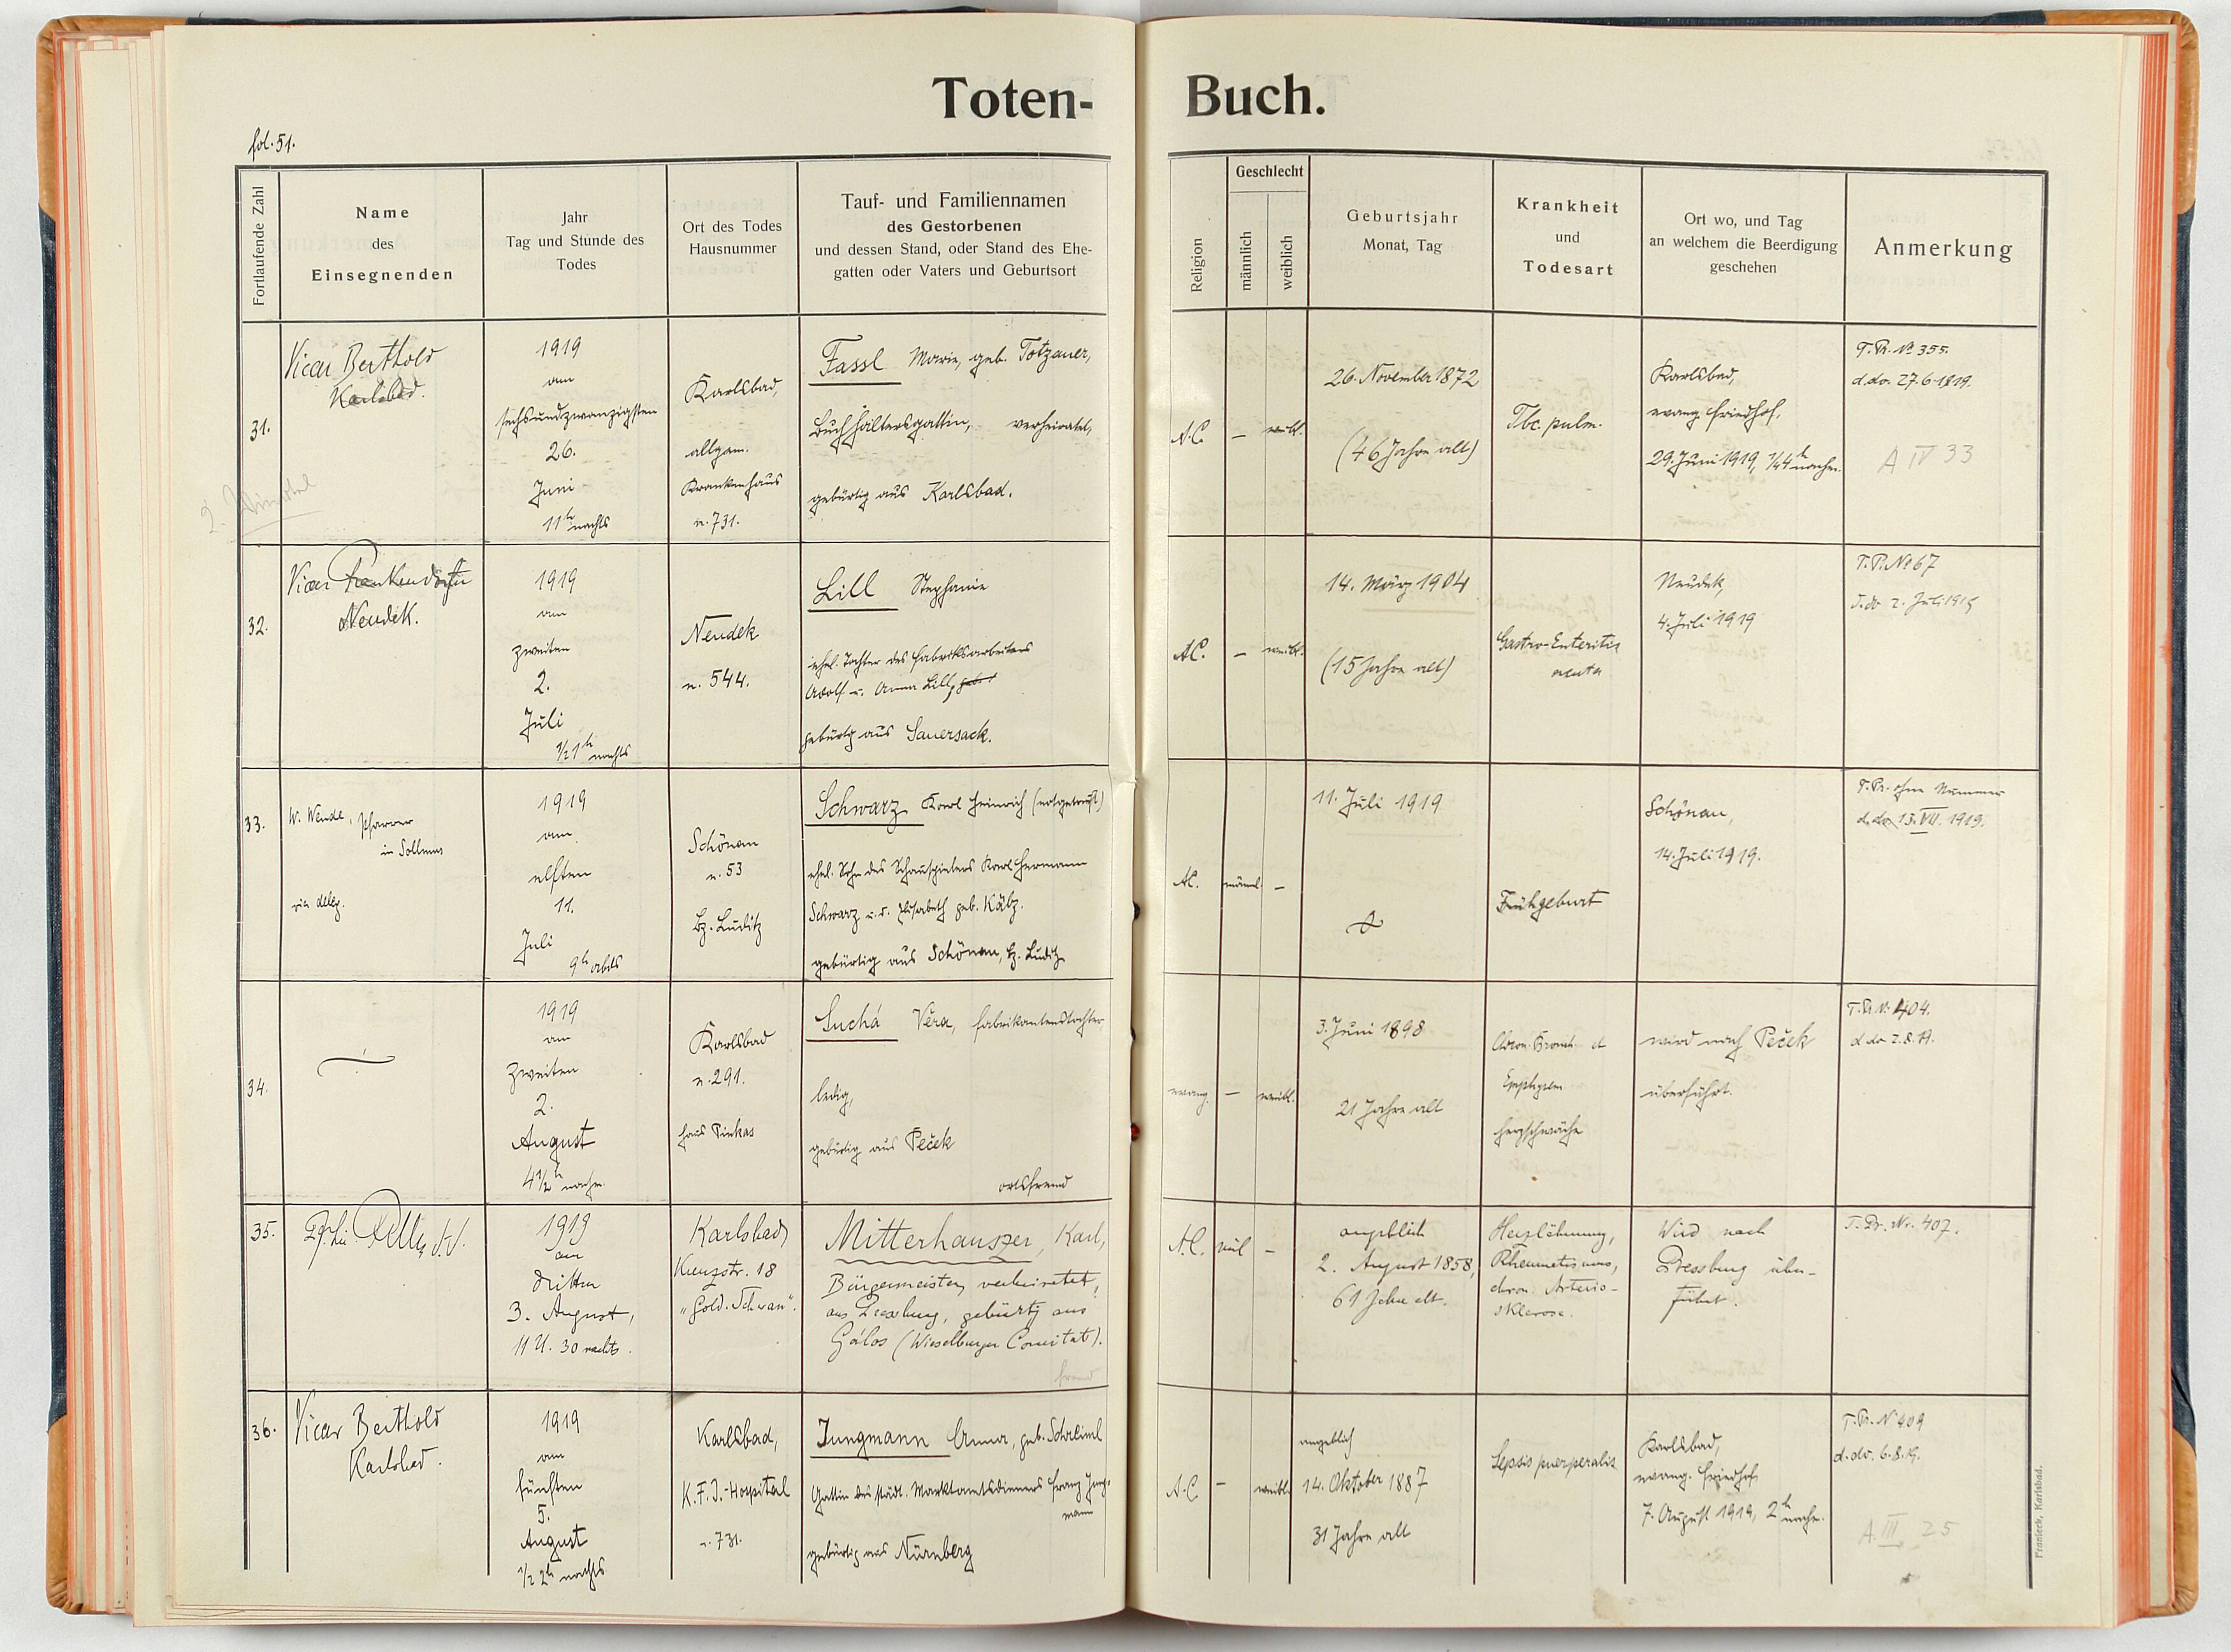 Toten-Buch.
fol. 51.
Fortlaufende Zahl
Name
des
Einsegnenden
Jahr
Tag und Stunde des
Todes
Ort des Todes
Hausnummer
Tauf- und Familiennamen
des Gestorbenen
und dessen Stand, oder Stand des Ehe-
gatten oder Vaters und Geburtsort
Religion
Geschlecht
männlich
weiblich
Geburtsjahr
Monat, Tag
Krankheit
und
Todesart
Ort wo, und Tag
an welchem die Beerdigung
geschehen
Anmerkung
31.
Vicar Berthold
Karlsbad.
1919
am
sechsundzwanzigsten
26.
Juni
11h nachts
Karlsbad,
allgem.
Krankenhaus
n. 731.
Fassl Marie, geb. Totzauer,
Buchhaltersgattin, verheiratet,
gebürtig aus Karlsbad.
A.C.
–
weibl.
26. November 1872
(46 Jahre alt)
Tbc. pulm.
Karlsbad,
evang. Friedhof,
29. Juni 1919, 1/4 4h nachm.
T.Pr. No 355.
d.do. 27.6.1919.
A IV 33
32.
Vicar
Neudek.
1919
am
zweiten
2.
Juli
1/2 1h nachts
Neudek
n. 544.
Lill Stephanie
ehel. Tochter des Fabriksarbeiters
Adolf u. Anna Lill,
gebürtig aus Sauersack.
A.C.
–
weibl.
14. März 1904
(15 Jahre alt)
Gastro-Enteritis
acuta
Neudek,
4. Juli 1919
T.P. No 67
d.do 2. Juli 1919
33.
W. Wende, Pfarrer
in Sollmus
via deleg.
1919
am
elften
11.
Juli
9h abds
Schönau
n. 53
Bz. Luditz
Schwarz Karl Heinrich (notgetauft)
ehel. Sohn des Schauspielers Karl Hermann
Schwarz u. d. Elisabeth geb. Käbz.
gebürtig aus Schönau, Bz. Luditz
A.C.
männl.
–
11. Juli 1919
Frühgeburt
Schönau,
14. Juli 1919.
T.Pr. ohne Nummer
d.do 13. VII. 1919.
34.
1919
am
zweiten
2.
August
4 1/2h nachm.
Karlsbad
n. 291.
Haus Pinkas
Suchá Věra, Fabrikantenstochter
ledig,
gebürtig aus Peček
ortsfremd
evang.
–
weibl.
3. Juni 1898
21 Jahre alt
Chron. Bronch. et
Emphysem
Herzschwäche
wird nach Peček
überführt.
T.Pr. No. 404.
d do 2.8.19.
35.
1919
am
dritten
3. August,
11 U. 30 nachts.
Karlsbad,
Kreuzstr. 18
"Gold. Schwan".
Mitterhauszer, Karl,
Bürgermeister, verheiratet,
aus Pressburg, gebürtig aus
Gálos (Wieselburger Comitat).
fremd
A.C.
–
angeblich
2. August 1858,
61 Jahre alt.
Herzlähmung,
Rheumatismus,
chron. Arterio-
sklerose.
Wird nach
Pressburg über-
führt.
T. Pr. Nr. 407.
36.
Vicar Berthold
Karlsbad.
1919
am
fünften
5.
August
1/2 2h nachts
Karlsbad,
K.F.J.-Hospital
n. 731.
Jungmann Anna, geb. Schreiml
Gattin des städt. Marktamtsdieners Franz Jung-
mann
gebürtig aus Nürnberg
A.C.
–
weibl.
angeblich
14. Oktober 1887
31 Jahre alt
Sepsis puerperalis
Karlsbad,
evang. Friedhof
7. August 1919, 2h nachm.
T.Pr. No 409
d.do. 6.8.19.
A. III. 25
Franieck, Karlsbad.